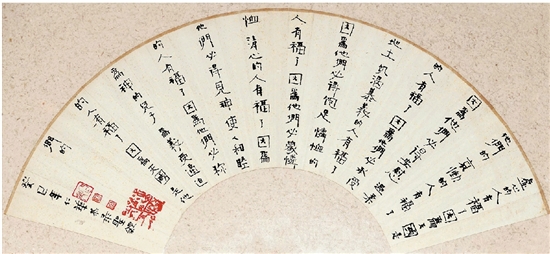 虛心的人有福了因爲天國是
他們的哀慟的人有福了
因爲他們必得安慰溫柔
的人有福了因爲他們必承受
地土飢渴慕義的人有福了
因爲他們必得飽足憐恤的
人有福了因爲他們必蒙憐
恤清心的人有福了因爲
他們必得見神使人和睦
的人有福了因爲他們必稱
爲神的兒子爲義受逼迫
的人有福了因爲天國是他
們的
癸巳年仁